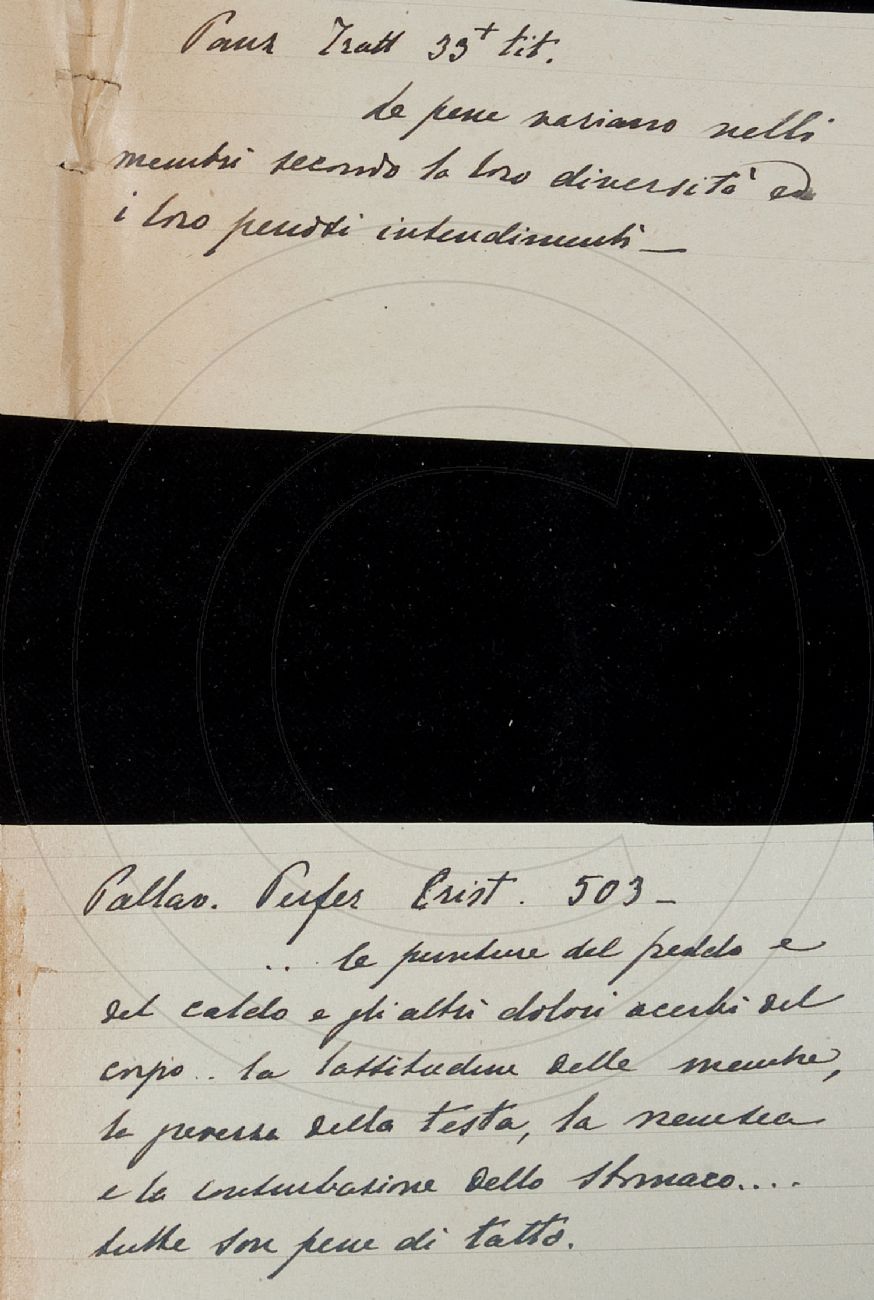 Panz Tratt 33+ tit.
Le pene variano nelli
membri secondo la loro diversità ed
i loro penosi intendimenti —
Pallav. Perfez Crist. 503 —
.. le punture del freddo e
del caldo e gli altri dolori acerbi del
corpo .. la lassitudine delle membre,
la gravezza della testa, la nausea
e la conturbazione dello stomaco....
tutte son pene di tatto.